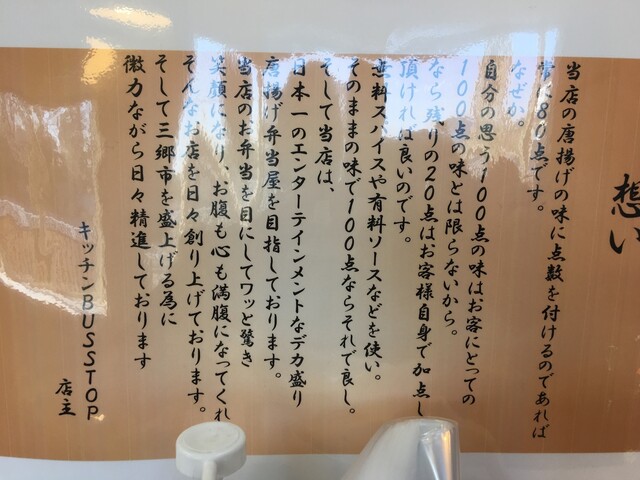 想い
当店の唐揚げの味に点数を付けるのであれば
常に80点です。
なぜか。
自分の思う100点の味はお客にとっての
100点の味とは限らないから。
なら残りの20点はお客様自身で加点し
頂ければ良いのです。
無料スパイスや有料ソースなどを使い。
そのままの味で100点ならそれで良し。
そして当店は、
日本一のエンターテインメントなデカ盛り
唐揚げ弁当屋を目指しております。
当店のお弁当を目にしてワッと驚き
笑顔になり、お腹も心も満腹になってくれ
そんなお店を日々創り上げております。
そして三郷市を盛上げる為に
微力ながら日々精進しております
キッチンBUSSTOP
店主